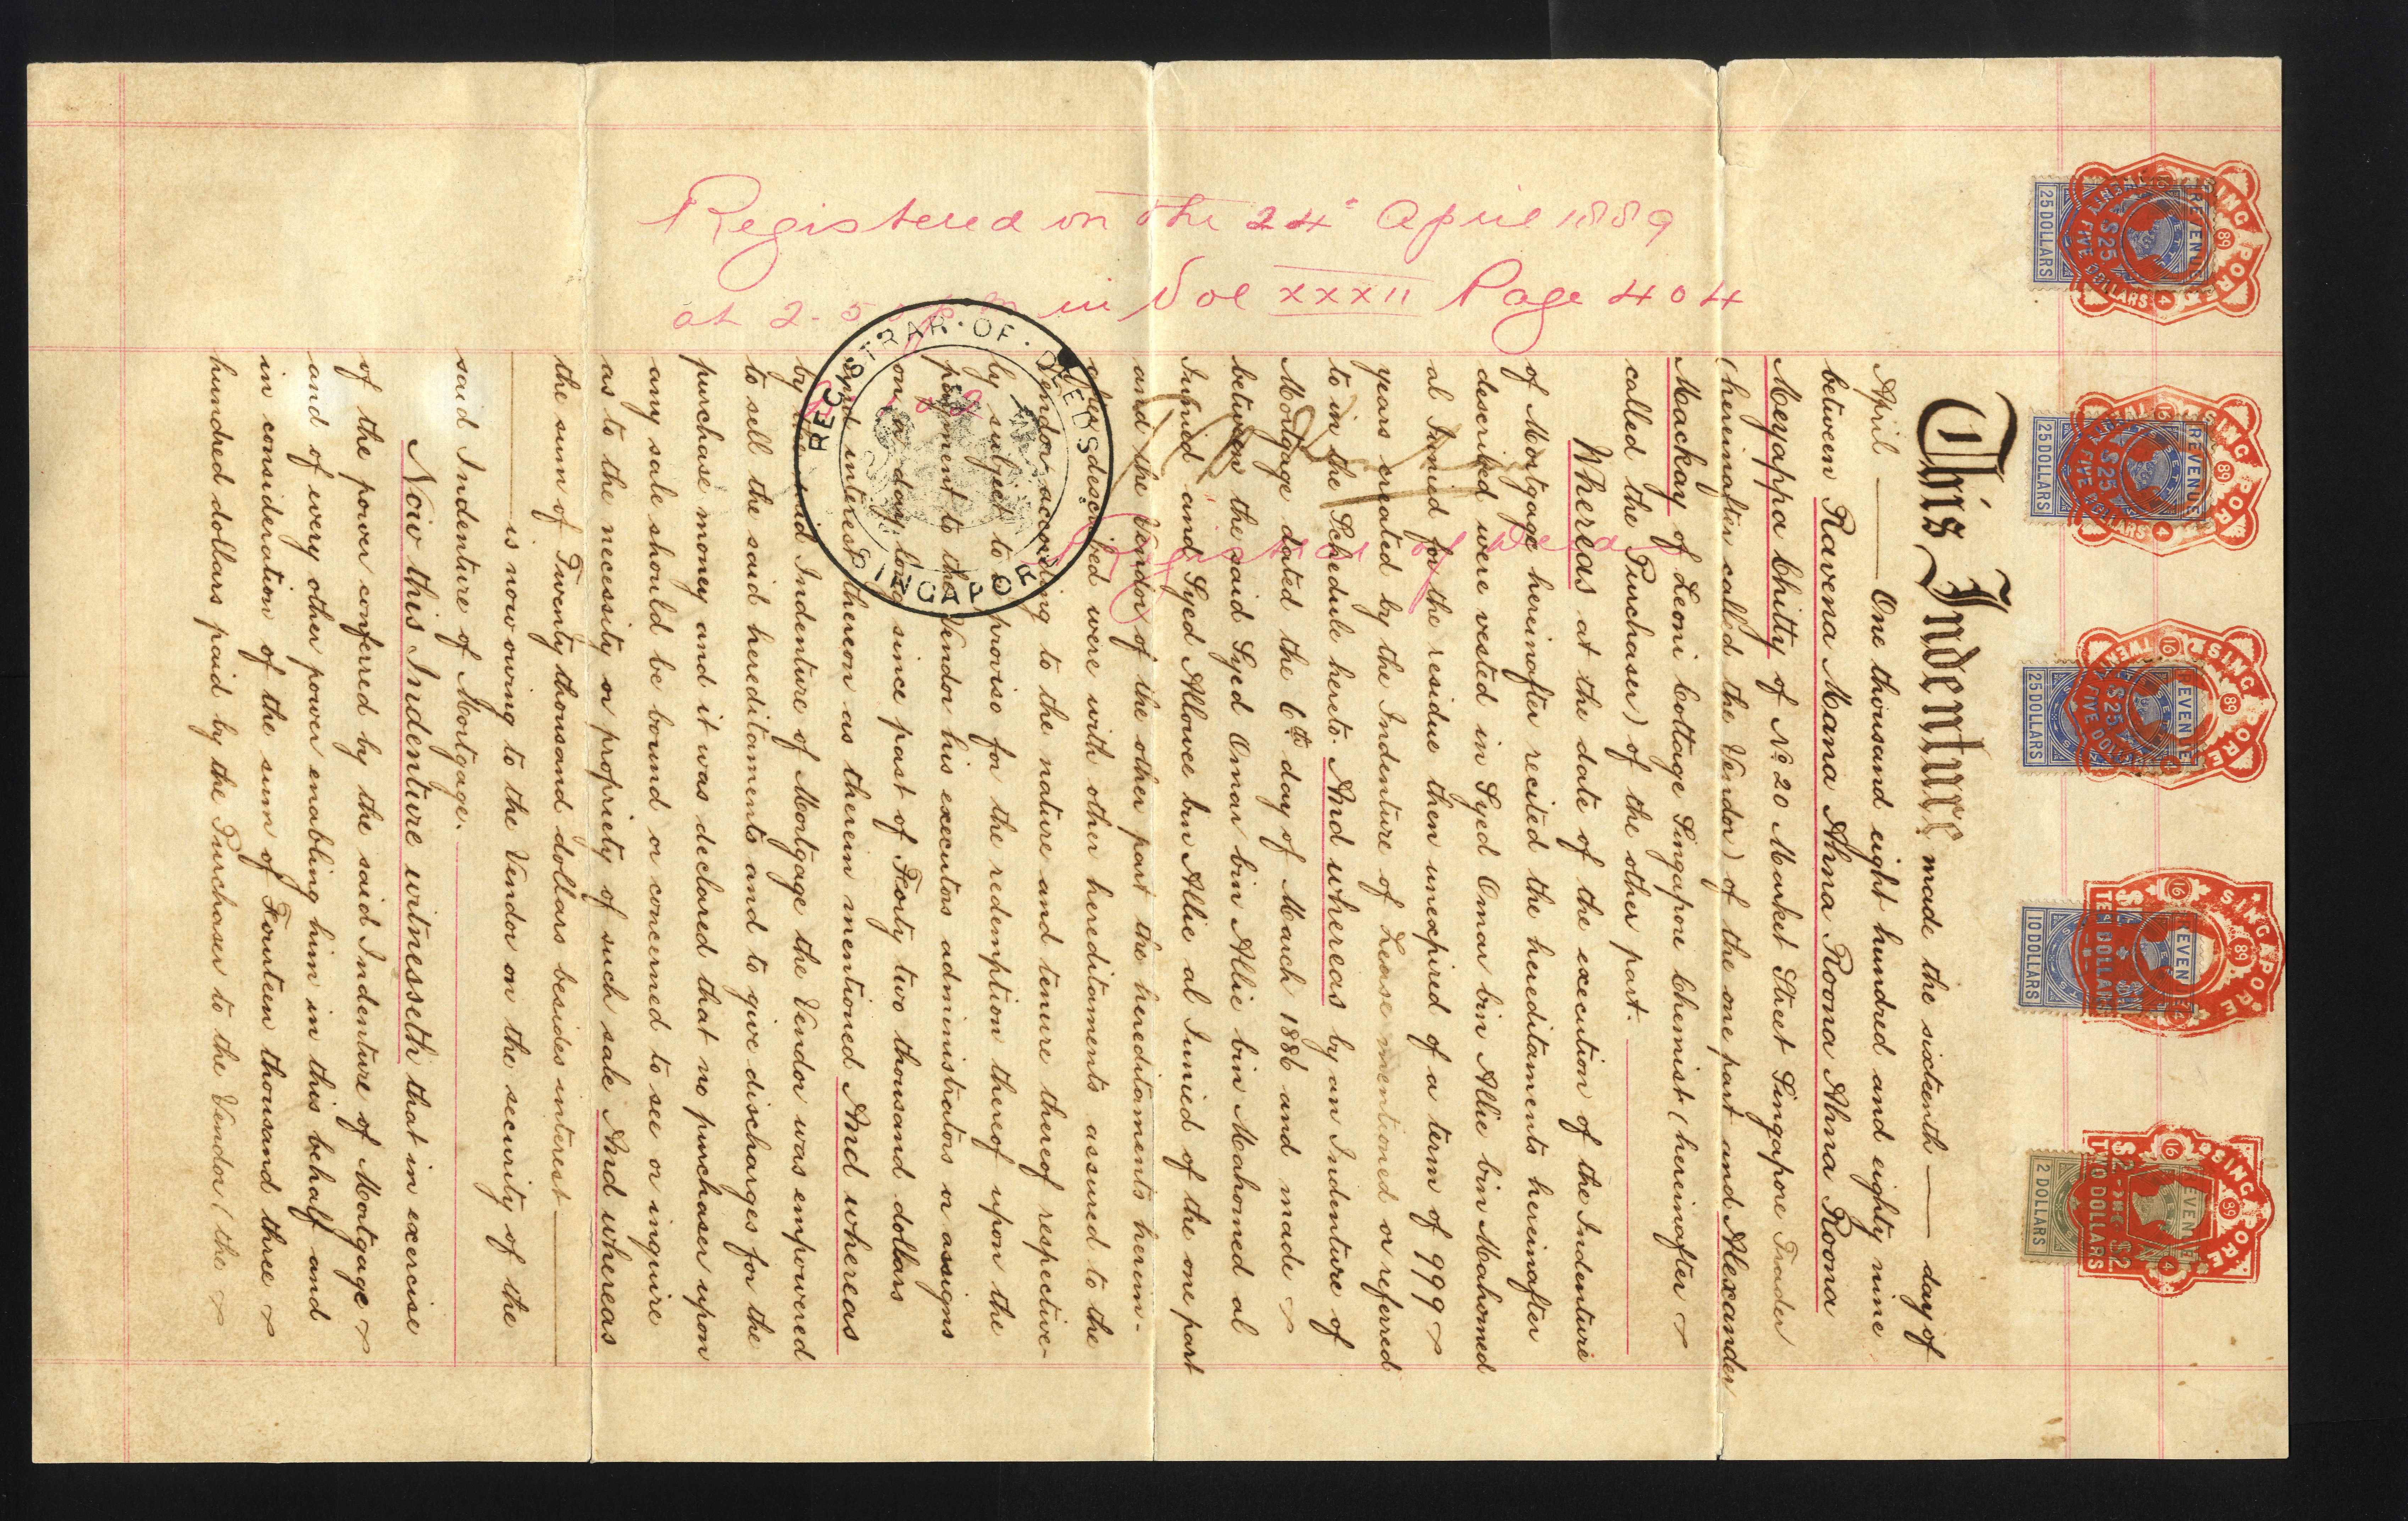 Registered on the 24 April 1889
at 2-5 pm in Vol XXXII Page 404
Registrar of Deeds
REGISTRAR · OF · DEEDS
SINGAPORE
SINGAPORE 89 16 4 TWENTY FIVE DOLLARS $25
REVENUE 25 DOLLARS
SINGAPORE 89 16 4 TWENTY FIVE DOLLARS $25
REVENUE 25 DOLLARS
SINGAPORE 89 16 4 TWENTY FIVE DOLLARS $25
REVENUE 25 DOLLARS
SINGAPORE 89 16 4 TEN DOLLARS
REVENUE 10 DOLLARS
SINGAPORE 89 16 4 $2 $2 TWO DOLLARS
REVENUE 2 DOLLARS
This Indenture made the sixteenth day of
April One thousand eight hundred and eighty nine
between Ravena Mana Ahna Roona Ahna Roona
Meyappa Chitty of No 20 Market Street Singapore Trader
(hereinafter called the Vendor) of the one part and Alexander
Mackay of Leoni Cottage Singapore Chemist (hereinafter
called the Purchaser) of the other part.
Whereas at the date of the execution of the Indenture
of Mortgage hereinafter recited the hereditaments hereinafter
described were vested in Syed Omar bin Allie bin Mahomed
al Junied for the residue then unexpired of a term of 999
years created by the Indenture of Lease mentioned or referred
to in the Schedule hereto. And whereas by an Indenture of
Mortgage dated the 6th day of March 1886 and made
between the said Syed Omar bin Allie bin Mahomed al
Junied and Syed Allowee bin Allie al Junied of the one part
and the Vendor of the other part the hereditaments herein-
after described were with other hereditaments assured to the
Vendor according to the nature and tenure thereof respective-
ly subject to provisoe for the redemption thereof upon the
payment to the Vendor his executors administrators or assigns
on a day long since past of Forty two thousand dollars
and interest thereon as therein mentioned And whereas
by the said Indenture of Mortgage the Vendor was empowered
to sell the said hereditaments and to give discharges for the
purchase money and it was declared that no purchaser upon
any sale should be bound or concerned to see or inquire
as to the necessity or propriety of such sale And whereas
the sum of Twenty thousand dollars besides interest
is now owing to the Vendor on the security of the
said Indenture of Mortgage.
Now this Indenture witnesseth that in exercise
of the power conferred by the said Indenture of Mortgage
and of every other power enabling him in this behalf and
in consideration of the sum of Fourteen thousand three
hundred dollars paid by the Purchaser to the Vendor (the